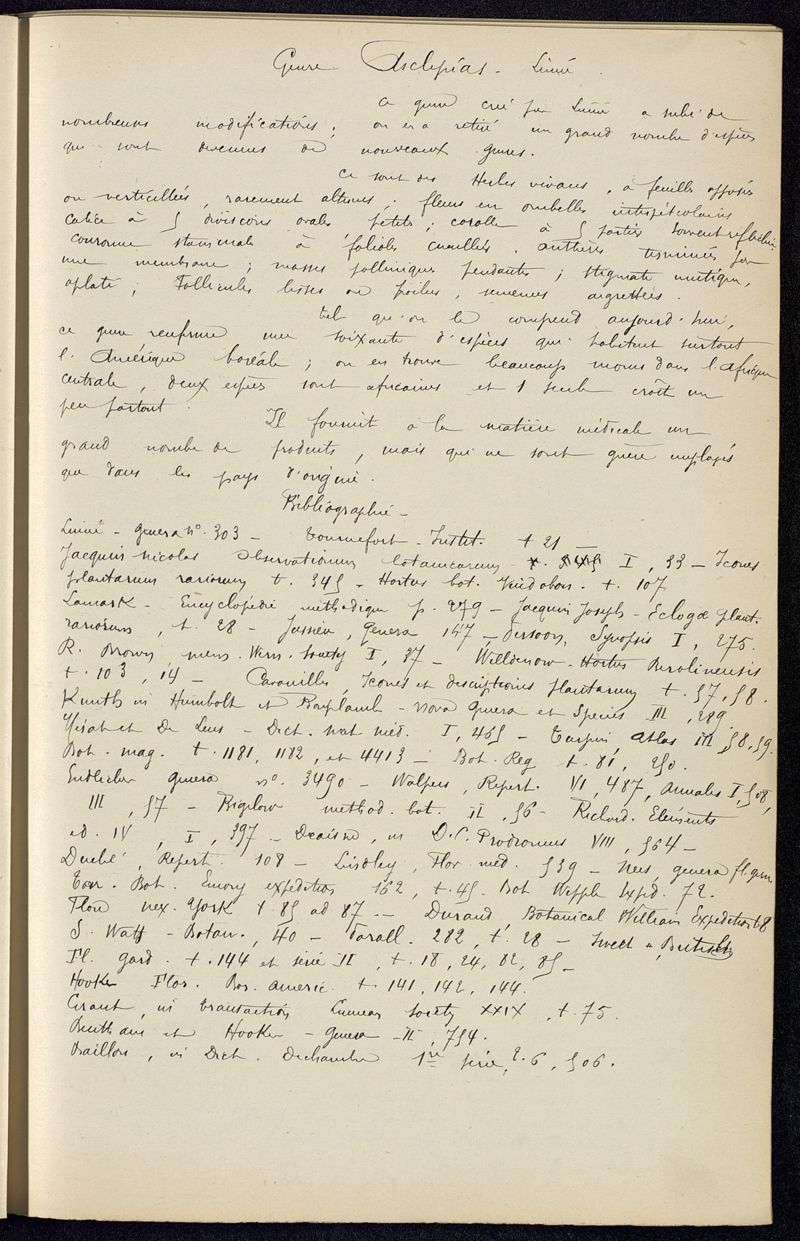 Genre Asclepias - Linné.
Ce genre créé par Linné a subi de
nombreuses modifications ; on en a retiré un grand nombre d'espèces
qui sont devenues de nouveaux genres.
Ce sont des Herbes vivaces, à feuilles opposées
ou verticillées, rarement alternes ; fleurs en ombelles interpétiolaires
calice à 5 divisions ovales, petits ; corolle à 5 parties souvent réfléchies.
Couronne staminale à 5 folioles cucullées. anthères terminées par
une membrane ; masses polliniques pendantes ; stigmate mutique,
aplati ; Follicules lisses ou poilus, semences aigrettées.
Tel qu'on le comprend aujourd'hui,
ce genre renferme une soixante d'espèces qui habitent surtout
l'Amérique boréale ; on en trouve beaucoup moins dans l'Afrique
centrale, deux espèces sont africaines et 1 seule croît un
peu partout.
Il fournit à la matière médicale un
grand nombre de produits, mais qui ne sont guère employés
que dans les pays d'origine.
Bibliographie -
Linné - genera n°. 303 - Tournefort - Instit. t 21 -
Jacquin Nicolas Observationum botanicarum I, 33 - Icones
plantarum rariorum t. 345 - Hortus bot. Vindobon. t. 107
Lamark - Encyclopédie méthodique p. 279 - Jacquin Joseph - Eclogæ plant.
rariorum, t. 28 - Jussieu, Genera 147 - Persoon, Synopsis I, 275.
R. Brown mem. Wern. Society I, 37 - Willdenow - Hortus Berolinensis
t. 103, 14 - Cavanilles, Icones et descriptiones plantarum t. 57, 58.
Kunth in Humbolt et Bonpland - nova genera et species III, 289.
Mérat et De Lens - Dict. mat méd. I, 465 - Turpin, atlas III, 58, 59.
Bot. mag. t. 1181, 1182, et 4413 - Bot. Reg t. 81, 250.
Endlicher genera n°. 3490 - Walpers, Repert. VI, 487, Annales I, 508,
III, 57 - Bigelow method. bot. II, 56 - Richard. Eléments
ed. IV, I, 397 - Decaisne, in D.C. Prodromus VIII, 564 -
Duché, Repert. 108 - Lindley, Flor. med. 539 - Nees, genera fl. germ.
Torr. Bot. Emory expedition 162, t. 45. Bot Wippl. Exped. 72.
Flora nex. York t. 85 ad 87 - Durand, Botanical William Expedition t. 8
S. Wats - Botan., 40 - Torall. 282, t. 28 - Sweet British
Fl. gard. t. 144 et série II, t. 18, 24, 82, 85 -
Hooker Flor. Bor. americ. t. 141, 142, 144.
Grant, in transaction Linnean Society XXIX, t. 75.
Bentham et Hooker - genera II, 754.
Baillon, in Dict. Dechambre 1re série, t. 6, 506.